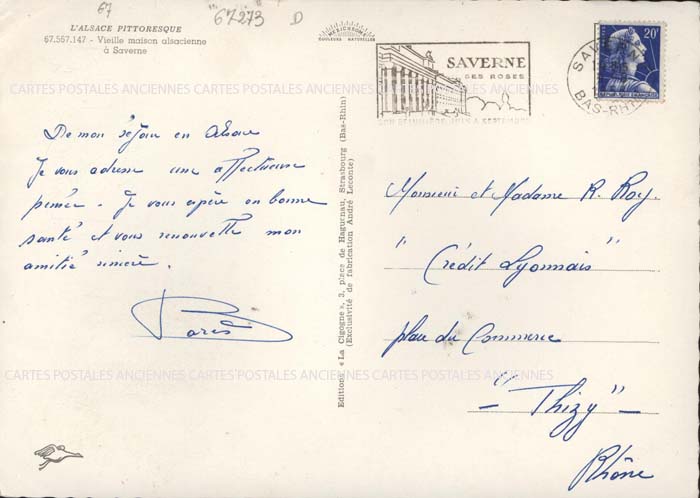 67
"67273 D
L'ALSACE PITTORESQUE
67.557.147 - Vieille maison alsacienne
à Saverne
MEXICHROME
COULEURS NATURELLES
SAVERNE
SES ROSES
SAVERNE
BAS-RHIN
20F
CARTES POSTALES ANCIENNES CARTES POSTALES ANCIENNES CARTES POSTALES ANCIENNES CARTES POSTALES ANCIENNES
De mon séjour en Alsace
Je vous adresse une affectueuse
pensée. Je vous espère en bonne
santé et vous renouvelle mon
amitié sincère.
Editions « La Cigogne », 3, place de Haguenau, Strasbourg (Bas-Rhin)
(Exclusivité de fabrication André Leconte)
Monsieur et Madame R. Roy.
"Crédit Lyonnais"
place du Commerce
- "Thizy" -
Rhône
CARTES POSTALES ANCIENNES CARTES POSTALES ANCIENNES CARTES POSTALES ANCIENNES CARTES POSTALES ANCIENNES